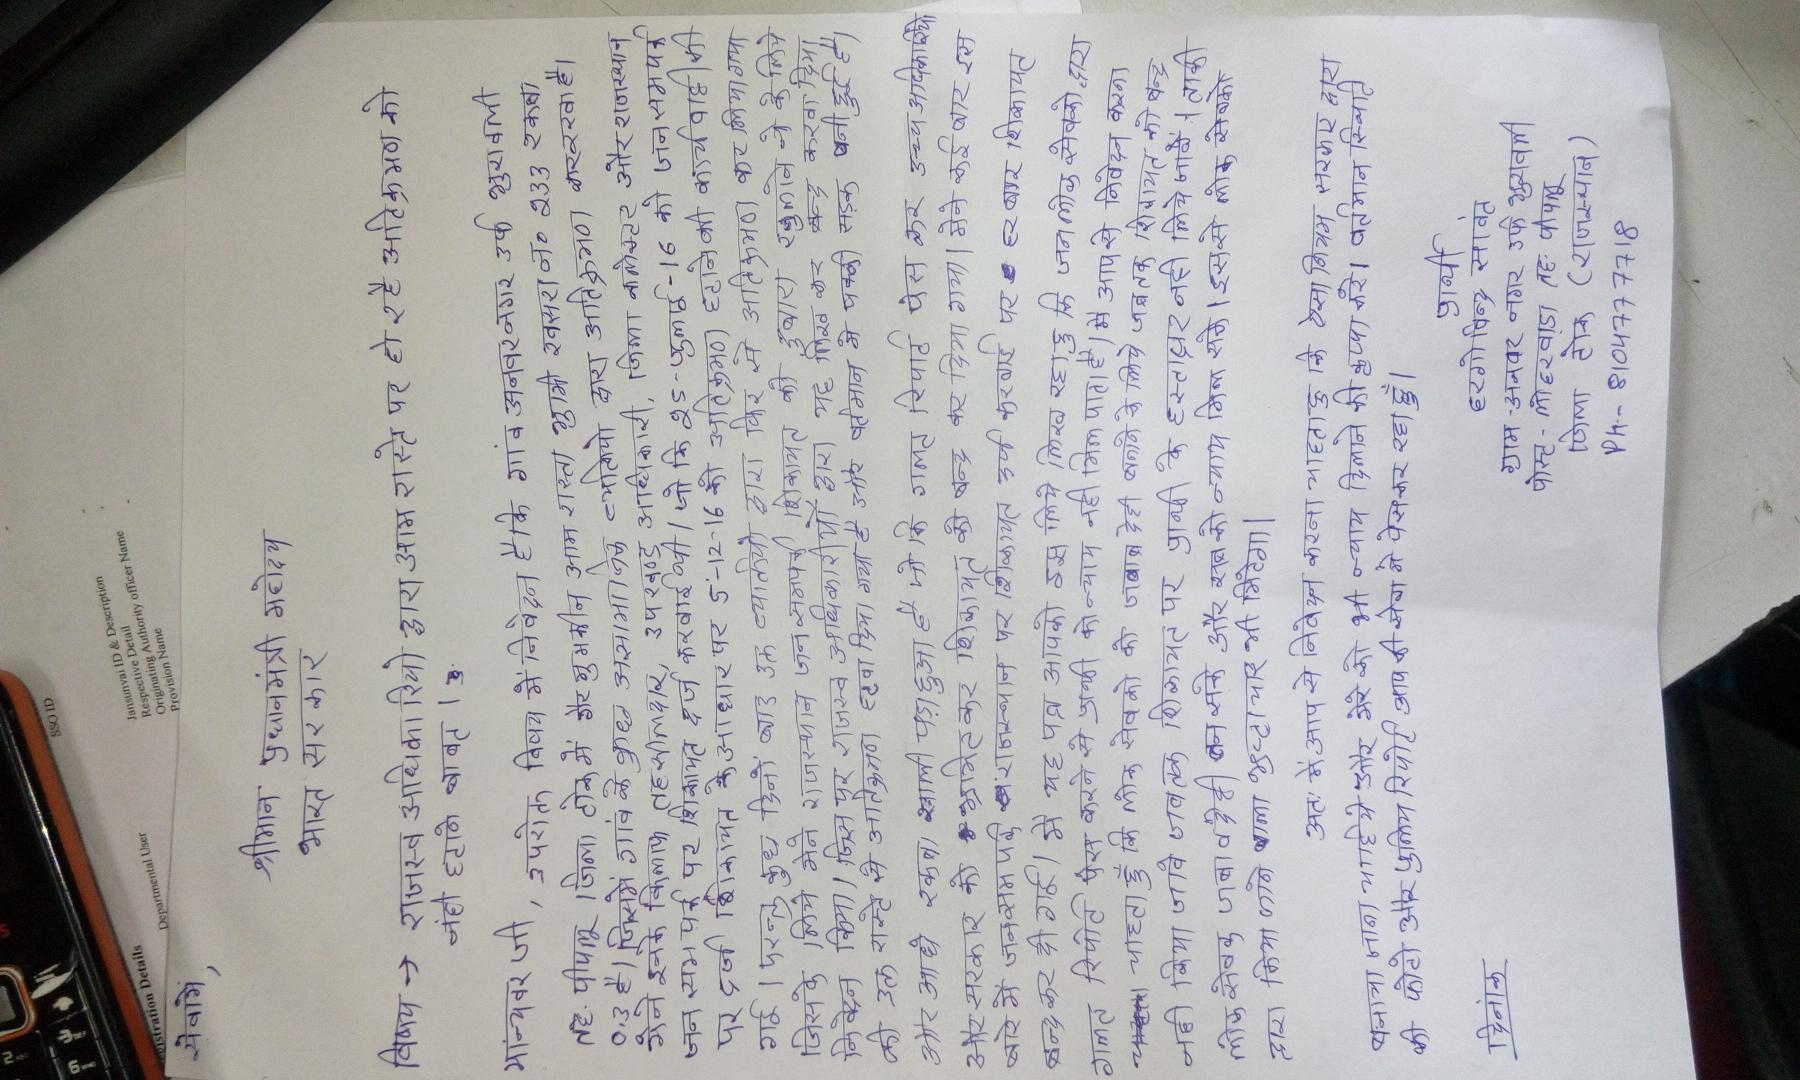 SSO ID
Jansunvai ID & Description
Respective Detail
Respective Authority officer Name
Originating Name
Provision Name
Departmental User
istration Details
सेवामे,
श्रीमान प्रधानमंत्री महोदय
भारत सरकार
विषय → राजस्व अधिकारियो द्वारा आम रास्ते पर हो रहे अतिक्रमण को
नही हटाने बाबत।
मान्यवर जी, उपरोक्त विषय में निवेदन है कि गांव अनवरनगर उर्फ झुरावली
तह. पीपलू जिला टोंक में गैर मुमकीन आम रास्ता भूमी खसरा नं० 233 रकबा
0.3 है। जिसमें गाव के कुछ असामाजिक व्यक्तियो द्वारा अतिक्रमण कर रखा है।
मैंने इनके खिलाफ तहसीलदार, उपखण्ड अधिकारी, जिला कलेक्टर और राजस्थान
जन सम्पर्क पर शिकायत दर्ज करवाई थी। जो कि 25-जुलाई-16 को जन सम्पर्क
पर दर्ज शिकायत के आधार पर 5-12-16 को अतिक्रमण हटाने की कार्य वाही की
गई। परन्तु कुछ दिनों बाद उक्त व्यक्तियो द्वारा फिर से अतिक्रमण कर लिया गया
जिसके लिये मैंने राजस्थान जन सम्पर्क शिकायत को दुबारा खुलवाने के लिये
निवेदन किया। जिस पर राजस्व अधिकारीयों द्वारा यह लिख कर बन्द करवा दिया
की उक्त रास्ते से अतिक्रमण हटवा दिया गया है और वर्तमान मे पक्की सड़क बनी हुई है।
और आधी रकबा खाली पड़ा हुआ है जो कि गलत रिपोर्ट पेश कर उच्च अधिकारियो
और सरकार को भ्रमित कर शिकायत को बन्द कर दिया गया। मेने कई बार इस
बारे में जनसम्पर्क राजस्थान पर शिकायत दर्ज करवाई पर हर बार शिकायत
बन्द कर दी गई। मै यह पत्र आपको इस लिये लिख रहा हु कि जन लोक सेवको द्वारा
गलत रिपोर्ट पेश करने से प्रार्थी को न्याय नही मिल पाता है। मै आपसे निवेदन करना
चाहता हुँ कि लोक सेवको को जवाब देही बनाने के लिये जबतक शिकायत को बन्द
नही किया जावे जबतक शिकायत पर प्रार्थी के हस्ताक्षर नही लिये जावे। ताकी
लोक सेवक जवाब देही बन सके और सबको न्याय मिल सके। इससे लोक सेवको
द्वारा किया जाने वाला भ्रष्टाचार भी मिटेगा।
अतः में आप से निवेदन करना चाहता हु कि ऐसा नियम सरकार द्वारा
बनाया जाना चाहिये और मेरे को भी न्याय दिलाने की कृपा करे। वर्तमान स्थिति
की फोटो और पुलिस रिपोर्ट आप की सेवा मे पेश कर रहा हुँ।
दिनांक
प्रार्थी
हरगोविन्द सावंत
ग्राम-अनवर नगर उर्फ झुरावली
पोस्ट - लोहरवाडा तह. पीपलू
जिला टोंक (राजस्थान)
Ph.- 8104777718